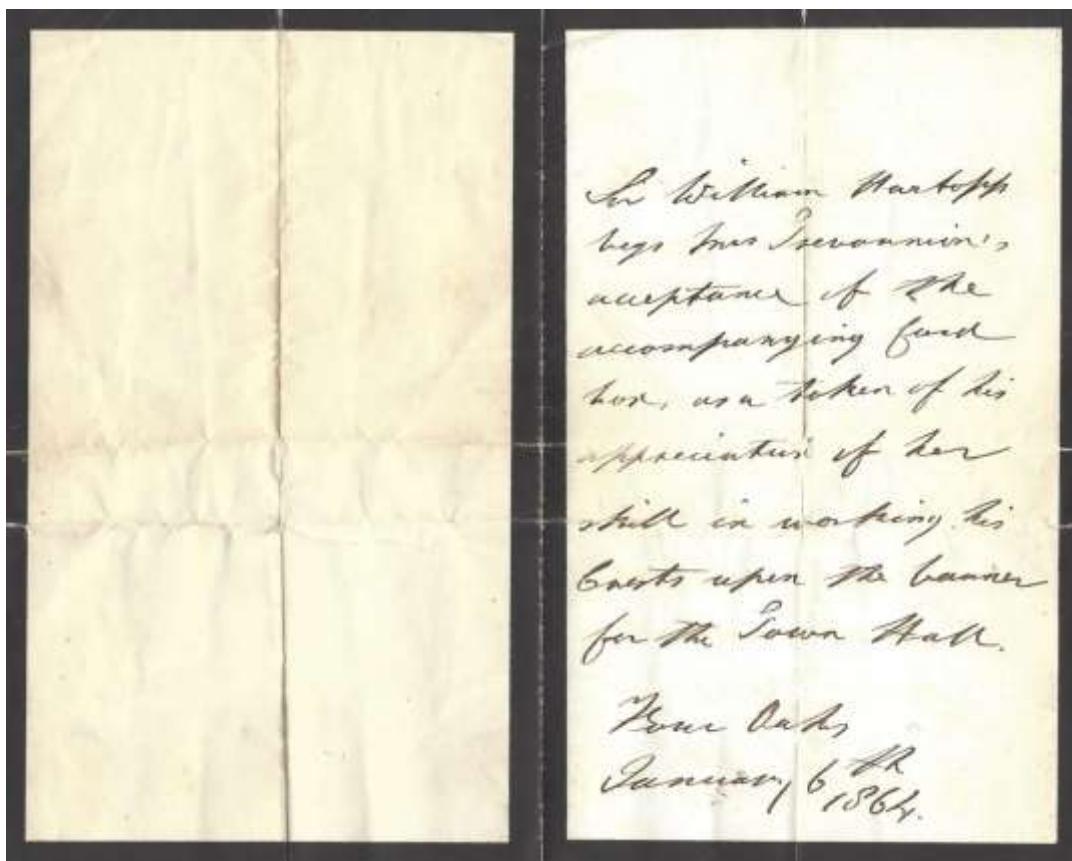 Sir William Hartopp
begs
acceptance of the
accompanying Card
box, as a token of his
appreciation of her
skill in working his
Crests upon the banner
for the Town Hall.
Four Oaks
January 6th
1864.